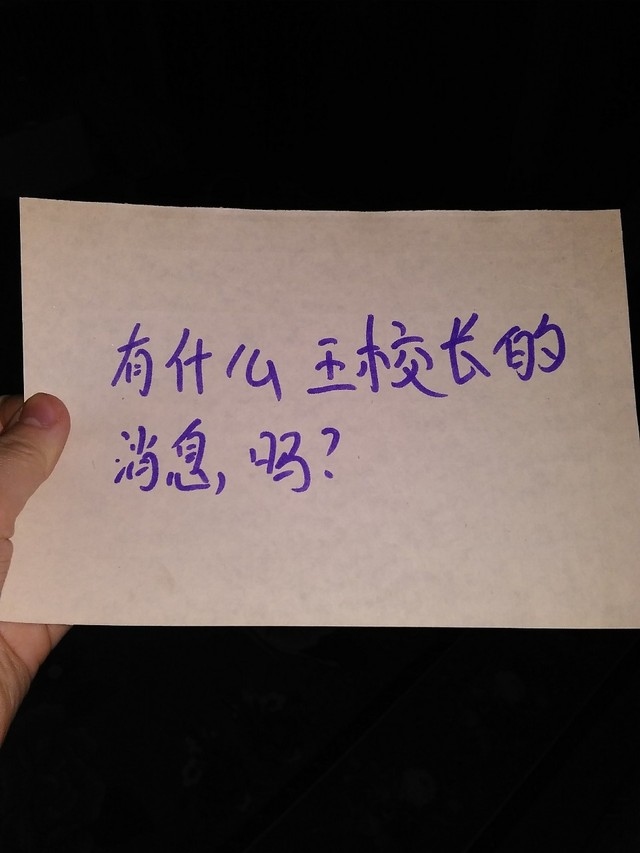 有什么王校长的
消息,吗?